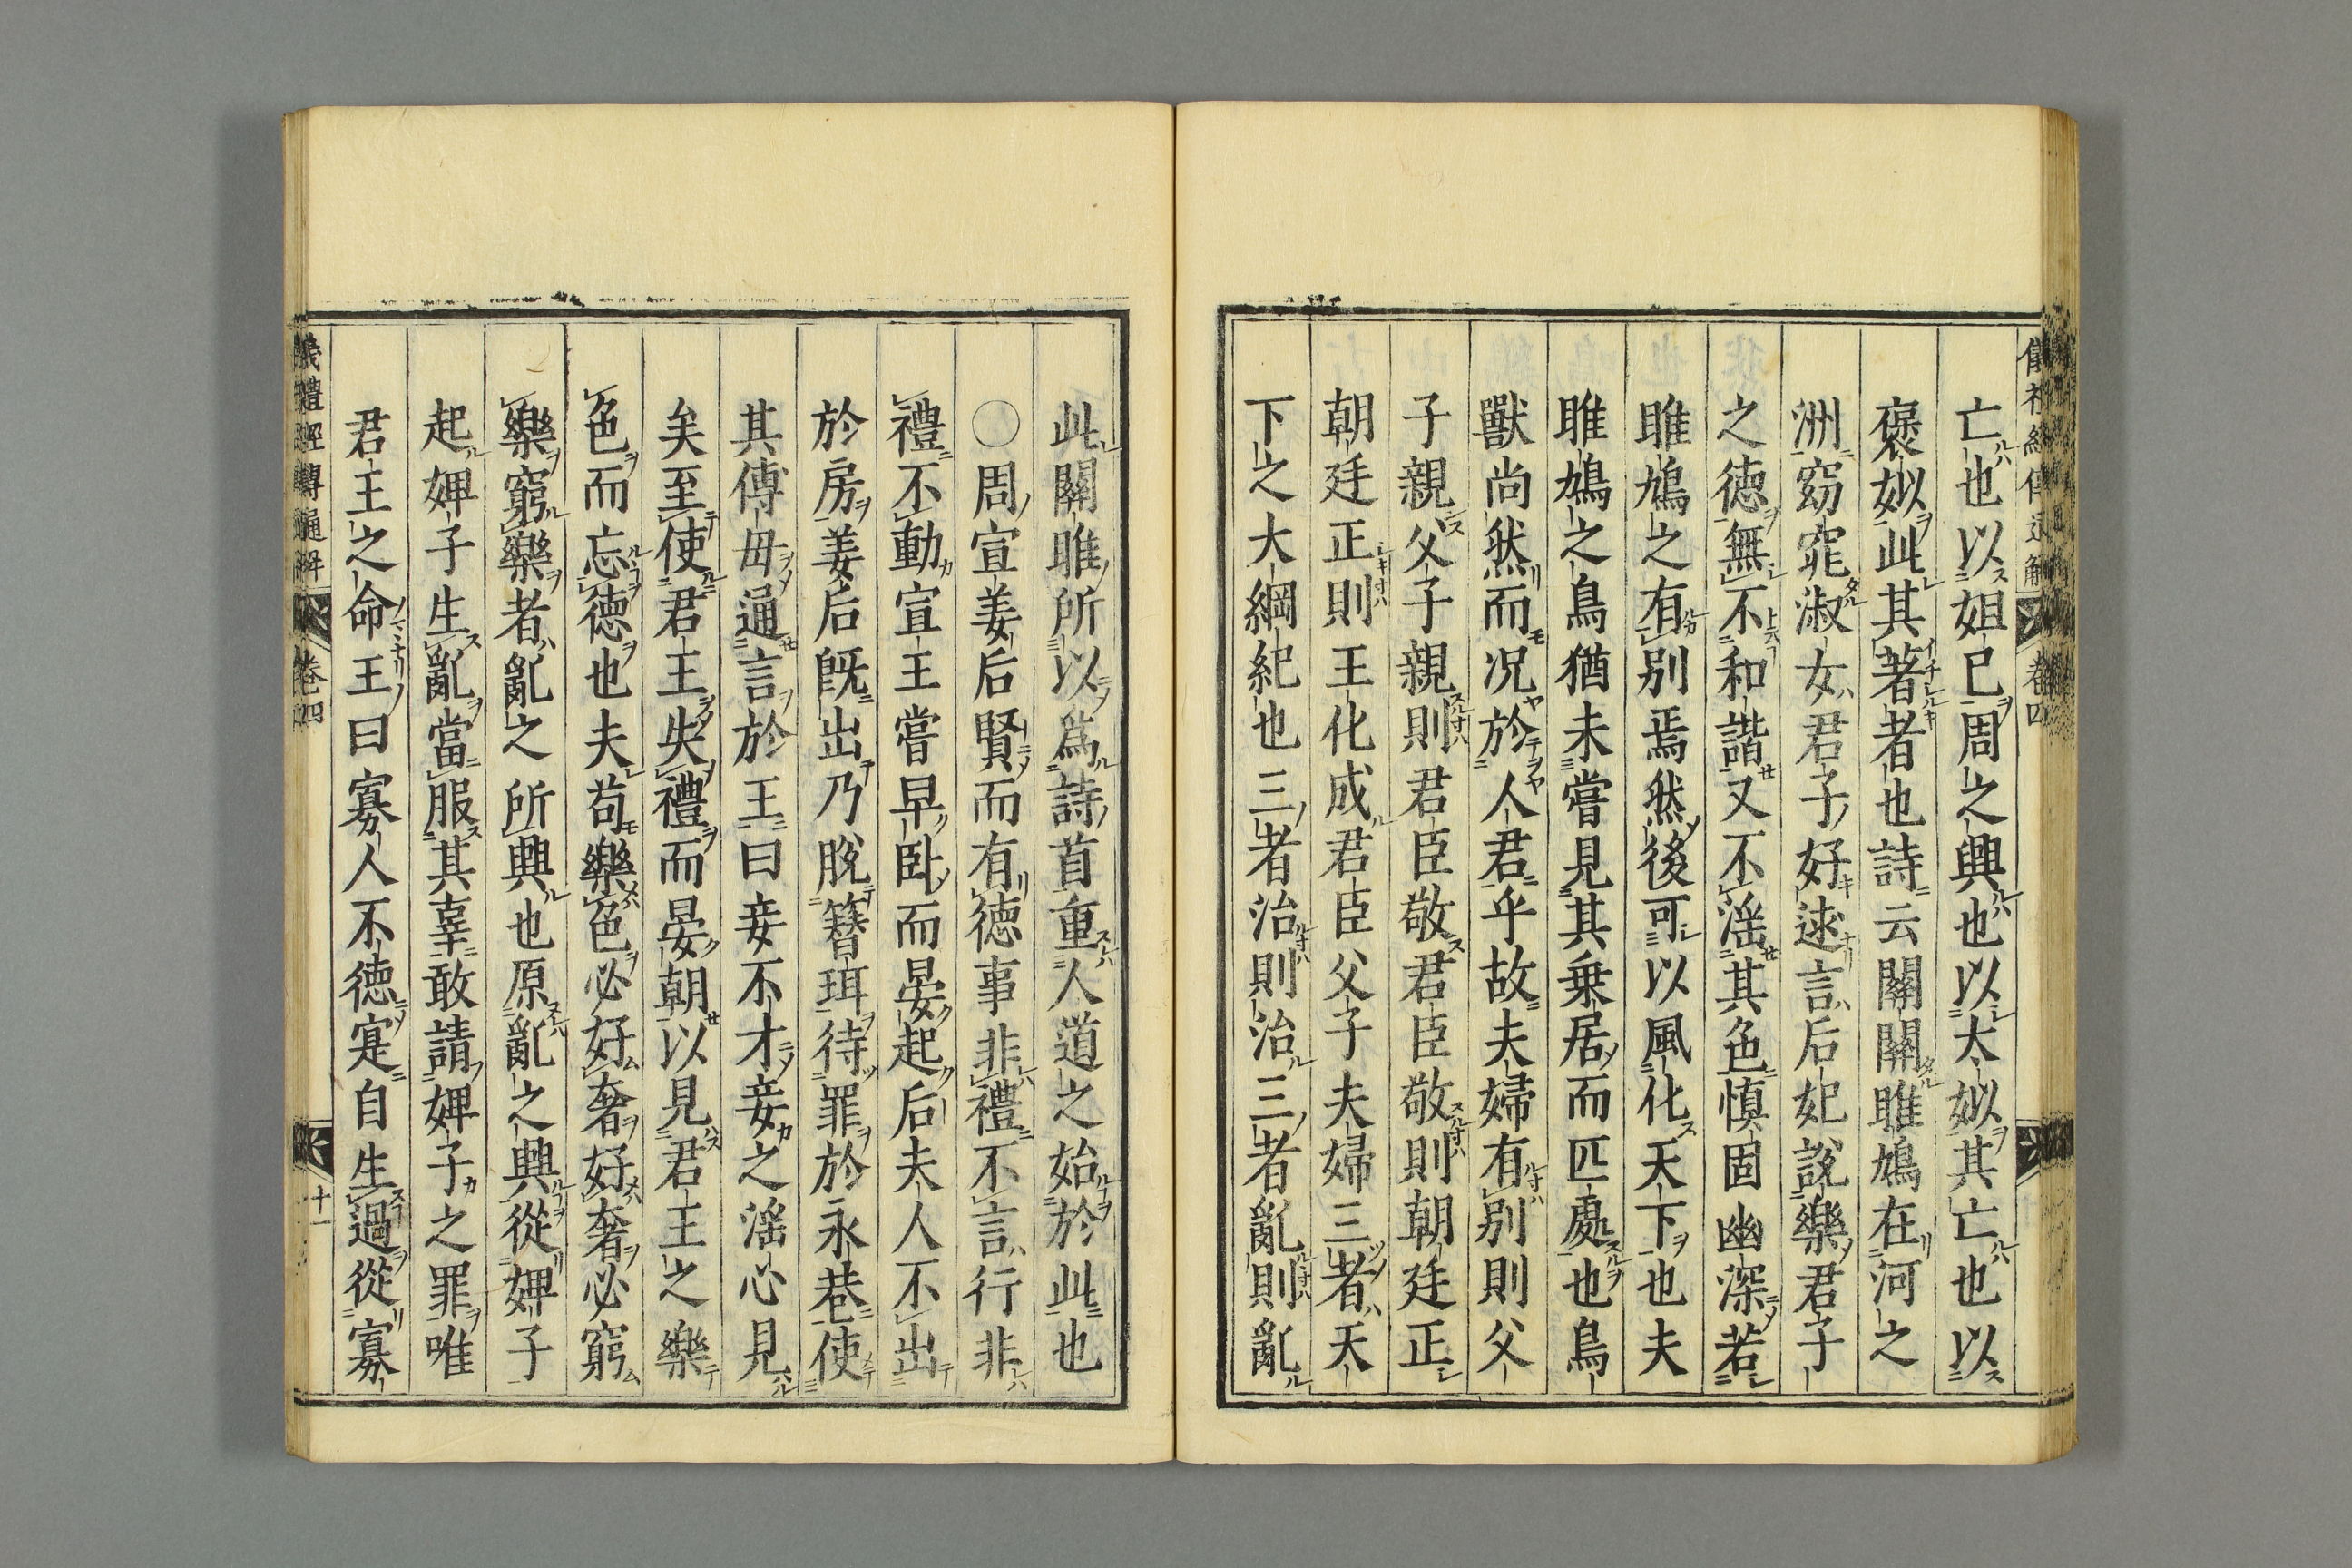 儀禮經傳通解 卷四
亡也以妲己周之興也以太姒其亡也以
褒姒此其著者也詩云關關雎鳩在河之
洲窈窕淑女君子好逑言后妃說樂君子
之德無不和諧又不淫其色慎固幽深若
雎鳩之有別焉然後可以風化天下也夫
雎鳩之鳥猶未嘗見其乗居而匹處也鳥
獸尚然而况於人君乎故夫婦有別則父
子親父子親則君臣敬君臣敬則朝廷正
朝廷正則王化成君臣父子夫婦三者天
下之大綱紀也三者治則治三者亂則亂
此關雎所以爲詩首重人道之始於此也
○周宣姜后賢而有德事非禮不言行非
禮不動宣王嘗早臥而晏起后夫人不出
於房姜后既出乃脫簪珥待罪於永巷使
其傅母通言於王曰妾不才妾之淫心見
矣至使君王失禮而晏朝以見君王之樂
色而忘德也夫苟樂色必好奢好奢必窮
樂窮樂者亂之所興也原亂之興從婢子
起婢子生亂當服其辜敢請婢子之罪唯
君王之命王曰寡人不德寔自生過從寡
儀禮經傳通解 卷四 十一